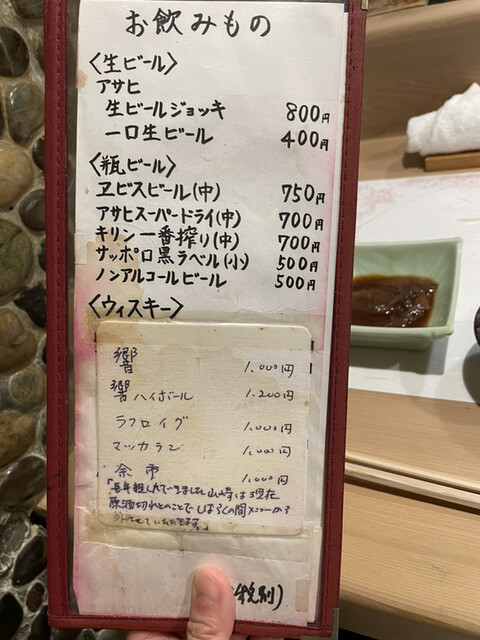 お飲みもの
〈生ビール〉
アサヒ
生ビールジョッキ 800円
一口生ビール 400円
〈瓶ビール〉
ヱビスビール(中) 750円
アサヒスーパードライ(中) 700円
キリン一番搾り(中) 700円
サッポロ黒ラベル(小) 500円
ノンアルコールビール 500円
〈ウィスキー〉
響 1,000円
響ハイボール 1,200円
ラフロイグ 1,000円
マッカラン 1,000円
余市 1,000円
山崎は現在
原酒切れとのことでしばらくの間メニューから
税別)